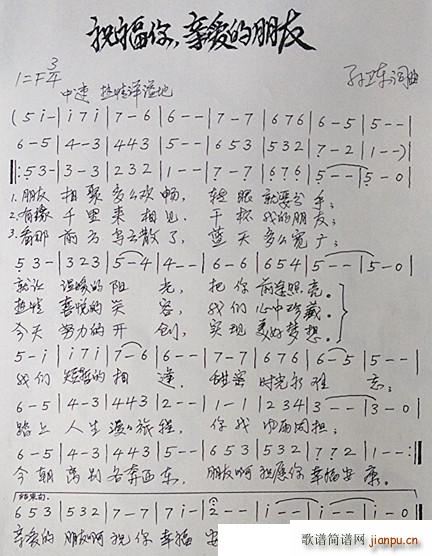 祝福你,亲爱的朋友
1=F 3/4
中速 热情洋溢地
孙卫东词曲
(5 i - | i 7 i | 7 - 6 | 6 - - | 7 - 7 | 6 7 6 | 6 - 5 | 5 - - |
6 - 5 | 4 - 3 | 4 4 3 | 5 - - | 6 5 3 | 5 3 2 | 7 - 2 | 1 - -) |
‖: 5 3 - | 3 - 3 | 2 3 2 | 1 - - | 7 - 7 | 6 7 6 | 5 - - | 5 - 0 |
1. 朋友 相聚 多么欢畅, 转眼 就要分手;
2. 有缘 千里来 相见, 干杯 我的朋友;
3. 看那 前方 乌云散了, 蓝天 多么宽广;
5 3 - | 3 2 3 | 5 - 4 | 4 - - | 6 - 6 | 6 5 4 | 5 - - | 5 - 0 |
就让 温暖的 阳光, 把你 前途照亮。
热情 喜悦的 笑容, 我们 心中珍藏。
今天 努力的 开创, 实现 美好梦想。
5 - i | i 7 i | 7 - 6 | 6 - - | 7 - 7 | 6 7 6 | 6 - 5 | 5 - - |
我们 短暂的 相逢, 甜蜜 时光永难忘;
6 - 5 | 4 - 3 | 4 4 3 | 2 - - | 1 - 1 | 2 3 4 | 3 - - | 3 - 0 |
踏上 人生 漫漫旅程, 你我
6 - 5 | 4 - 3 | 4 4 3 | 5 - - | 6 5 3 | 5 3 2 | 7 7 2 | 1 - - :‖
今朝 离别 各奔西东, 朋友啊 祝愿你 幸福安康。
结束句
6 5 3 | 5 3 2 | 7 - 7 | 2 - - | i - - | i - - | i - 0
亲爱的 朋友啊 祝你 幸福 安
歌谱简谱网
jianpu.cn